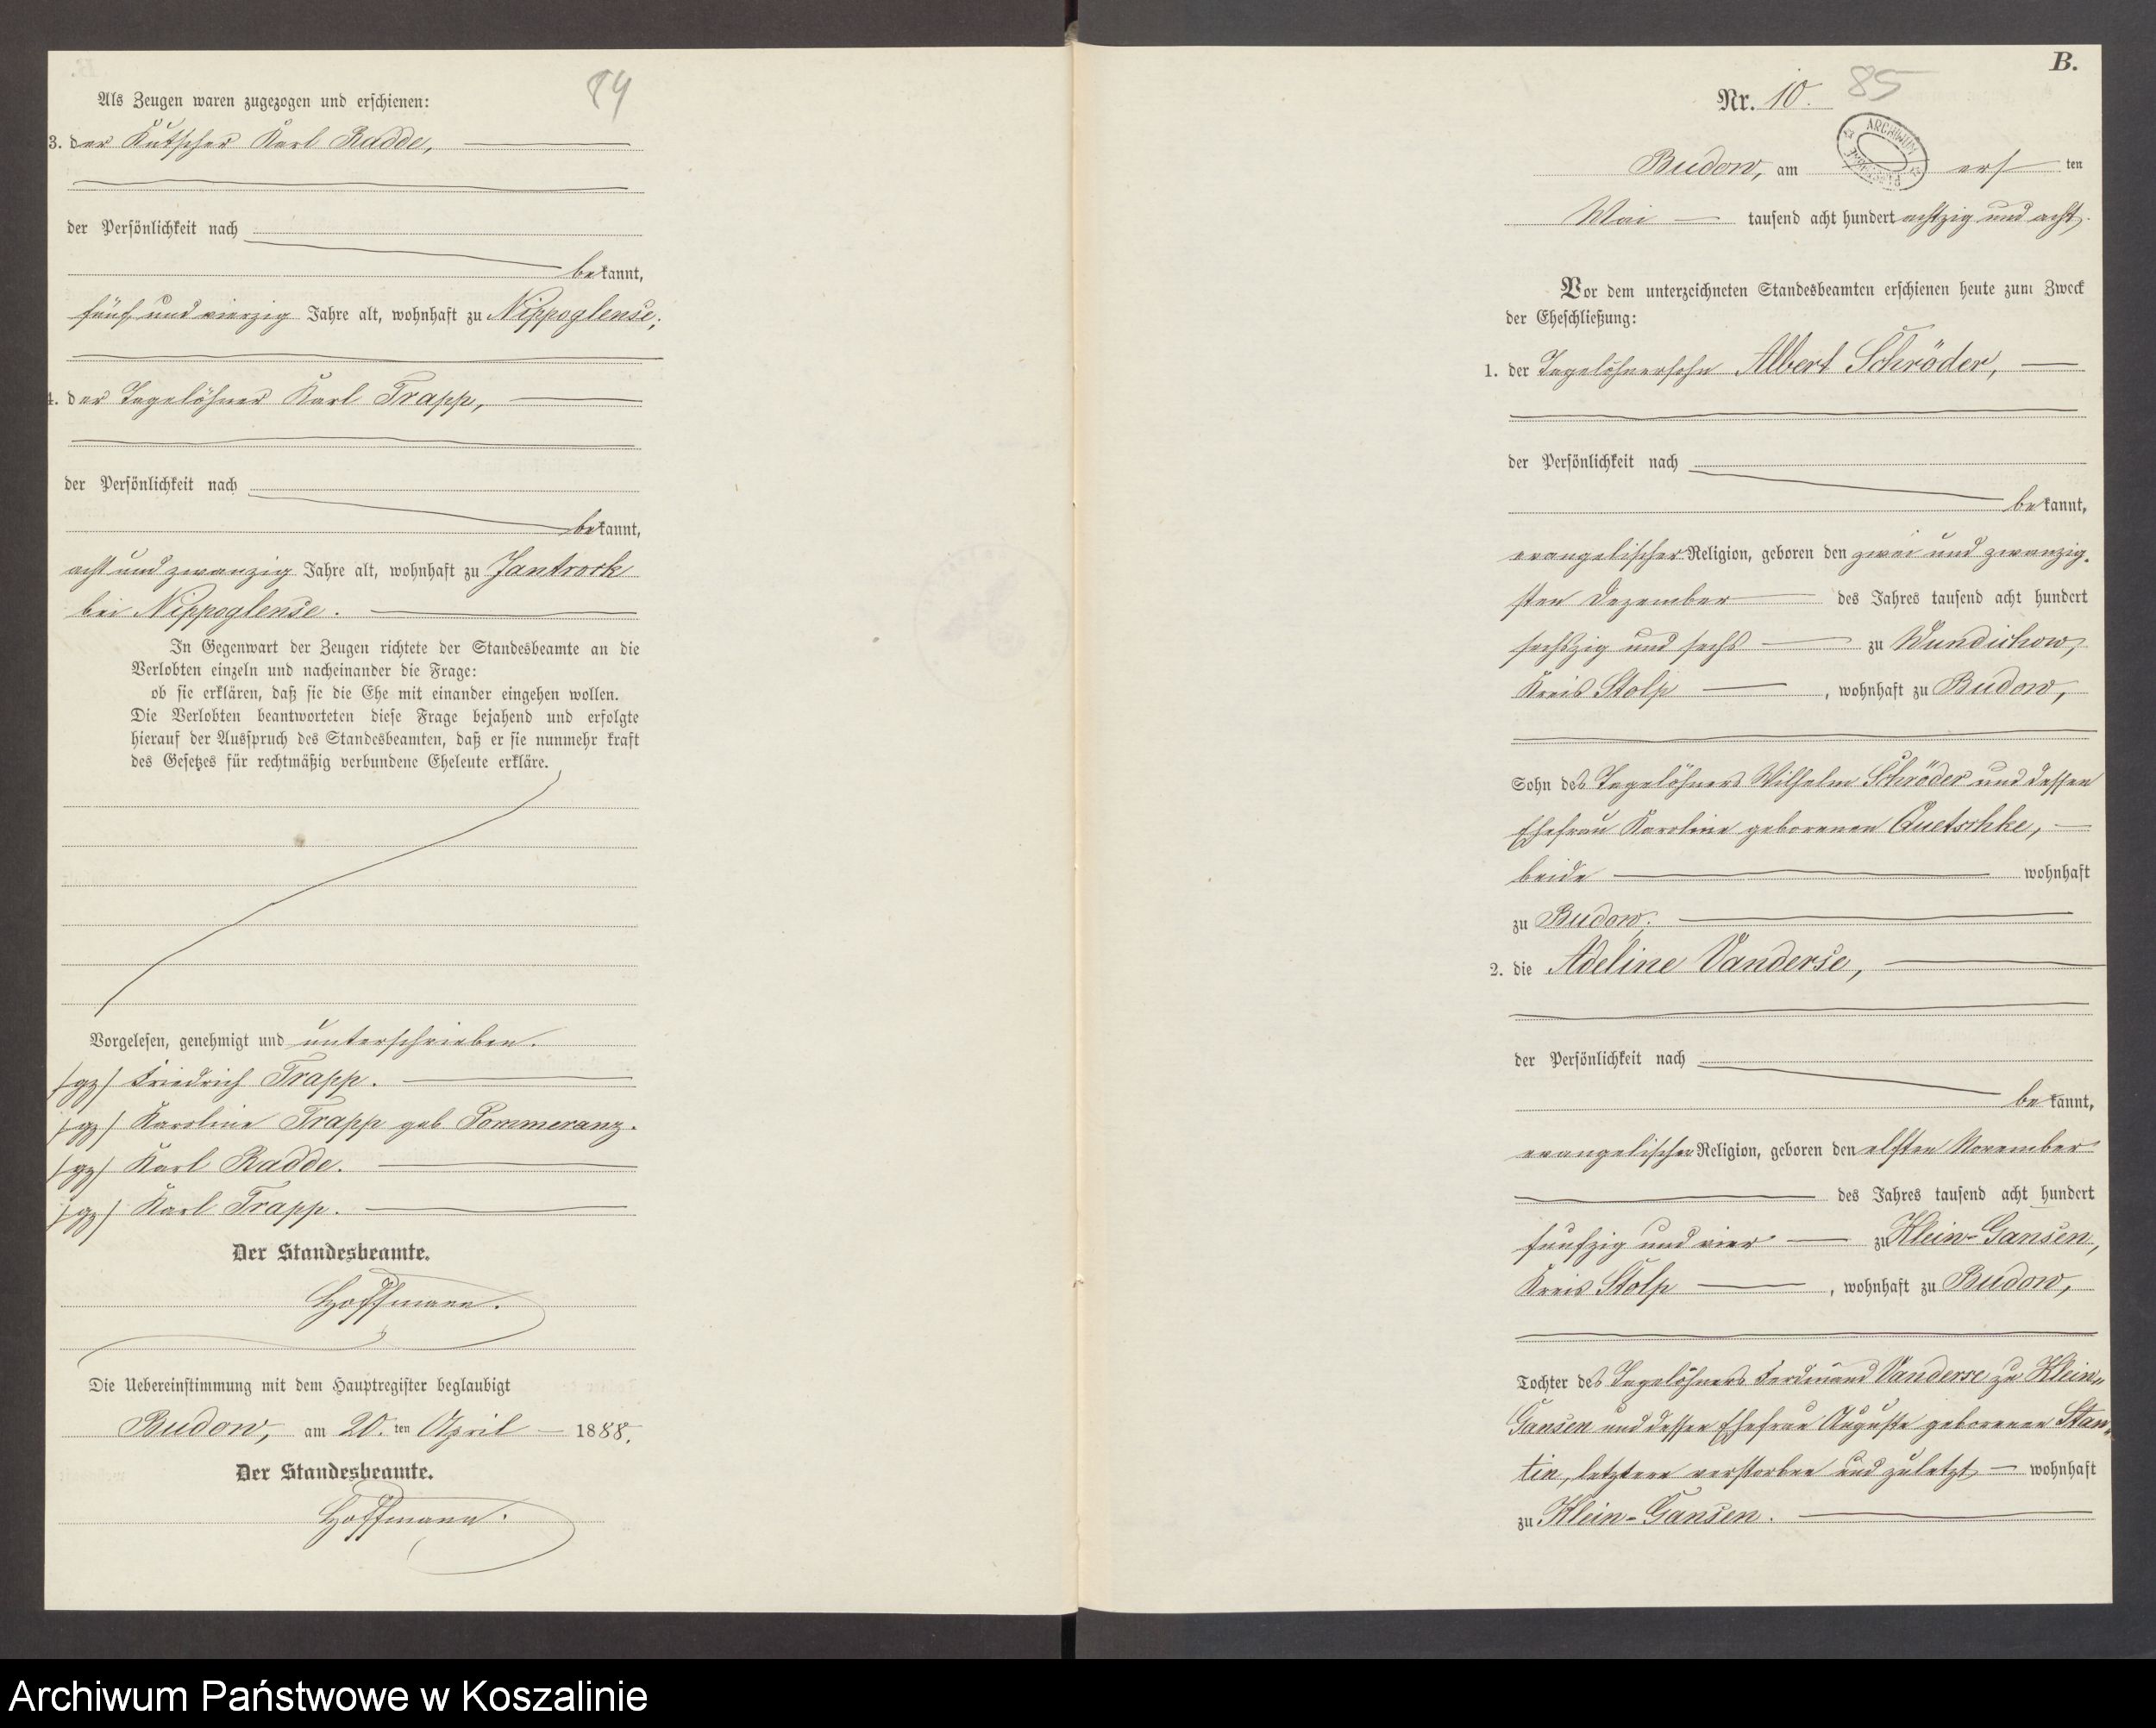 84
Als Zeugen waren zugezogen und erschienen:
3. der Kutscher Karl Radde,
der Persönlichkeit nach
bekannt,
fünf und vierzig Jahre alt, wohnhaft zu Nippoglense;
4. der Tagelöhner Karl Trapp,
der Persönlichkeit nach
bekannt,
acht und zwanzig Jahre alt, wohnhaft zu Jantrork
bei Nippoglense.
In Gegenwart der Zeugen richtete der Standesbeamte an die
Verlobten einzeln und nacheinander die Frage:
ob sie erklären, daß sie die Ehe mit einander eingehen wollen.
Die Verlobten beantworteten diese Frage bejahend und erfolgte
hierauf der Ausspruch des Standesbeamten, daß er sie nunmehr kraft
des Gesetzes für rechtmäßig verbundene Eheleute erkläre.
Vorgelesen, genehmigt und unterschrieben.
/gz/ Friedrich Trapp.
/gz/ Karoline Trapp geb Pommeranz.
/gz/ Karl Radde.
/gz/ Karl Trapp.
Der Standesbeamte.
Hoffmann.
Die Uebereinstimmung mit dem Hauptregister beglaubigt
Budow, am 20. ten April 1888.
Der Standesbeamte.
Hoffmann.
B.
Nr. 10. 85
ARCHIWUM
Budow, am ers ten
Mai tausend acht hundert achtzig und acht.
Vor dem unterzeichneten Standesbeamten erschienen heute zum Zweck
der Eheschließung:
1. der Tagelöhnersohn Albert Schröder,
der Persönlichkeit nach
bekannt,
evangelischer Religion, geboren den zwei und zwanzig-
sten Dezember des Jahres tausend acht hundert
sechszig und sechs zu Wundichow,
Kreis Stolp, wohnhaft zu Budow,
Sohn des Tagelöhners Wilhelm Schröder und dessen
Ehefrau Karoline geborenen Quetschke,
beide wohnhaft
zu Budow.
2. die Adeline Vanderse,
der Persönlichkeit nach
bekannt,
evangelischer Religion, geboren den elften November
des Jahres tausend acht hundert
funfzig und vier zu Klein-Gansen,
Kreis Stolp, wohnhaft zu Budow,
Tochter des Tagelöhners Ferdinand Vanderse zu Klein-
Gansen und dessen Ehefrau Auguste geborenen Stan-
tin, letztere verstorben und zuletzt wohnhaft
zu Klein-Gansen.
Archiwum Państwowe w Koszalinie